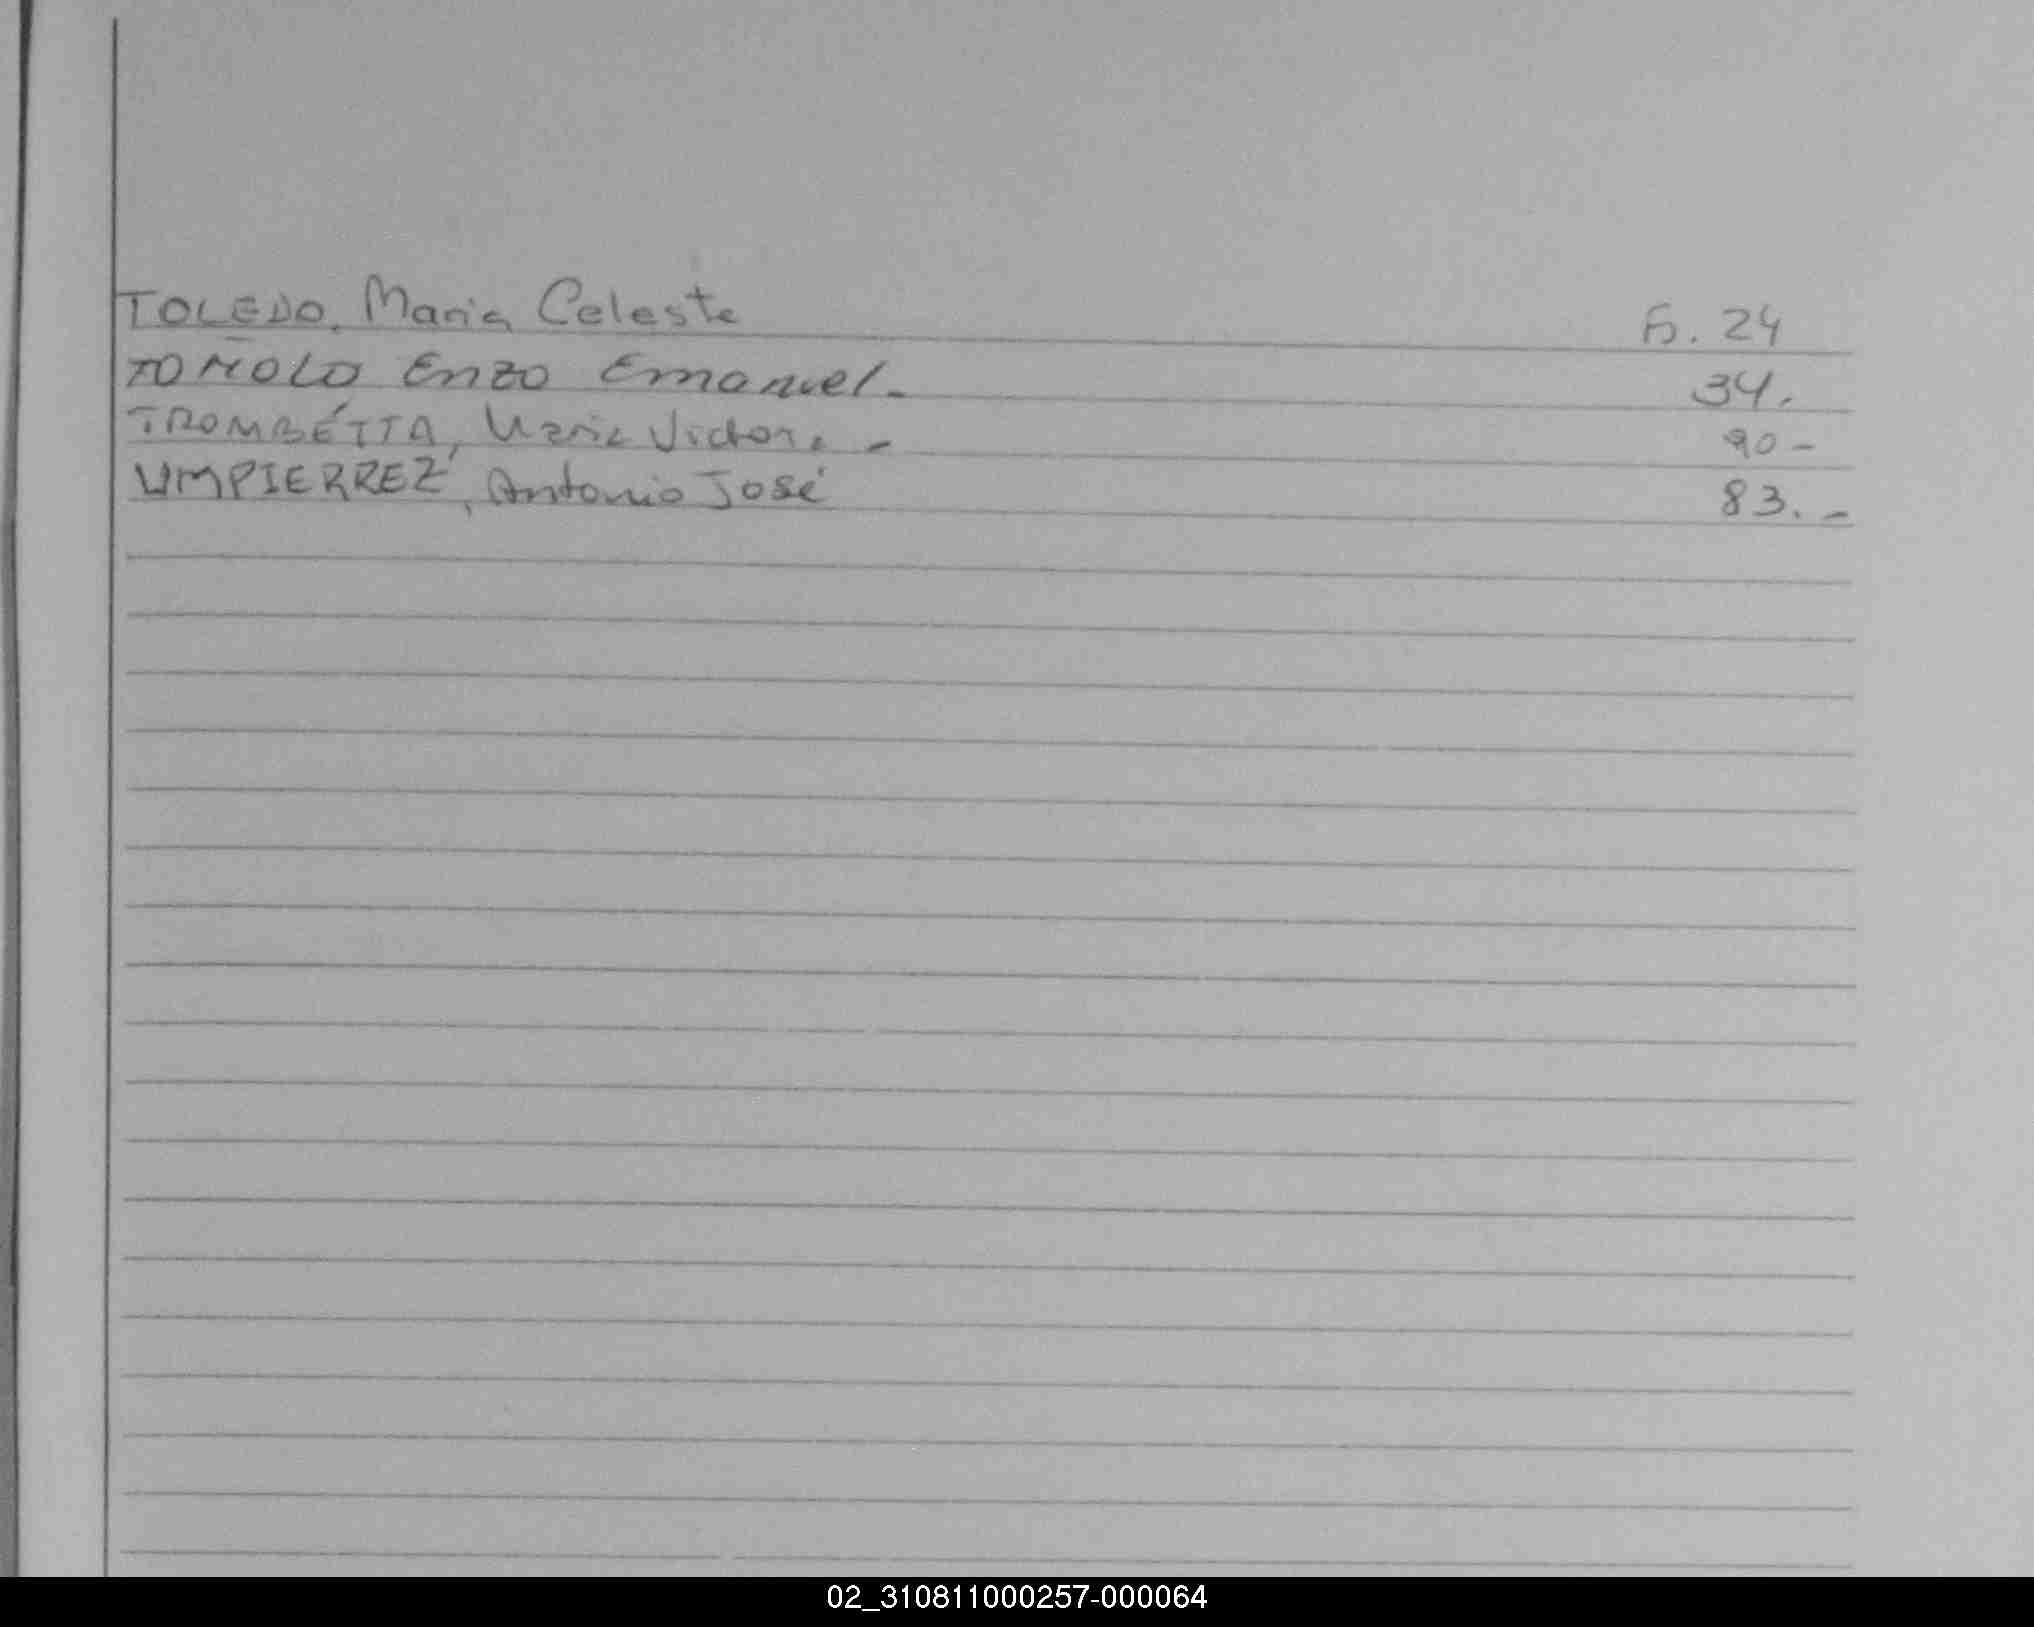 TOLEDO, Maria Celeste Fs. 24
TOÑOLO Enzo Emanuel.- 34.
TROMBÉTTA, Maria Victoria - 90 -
UMPIERREZ, Antonio José 83. -
02_310811000257-000064